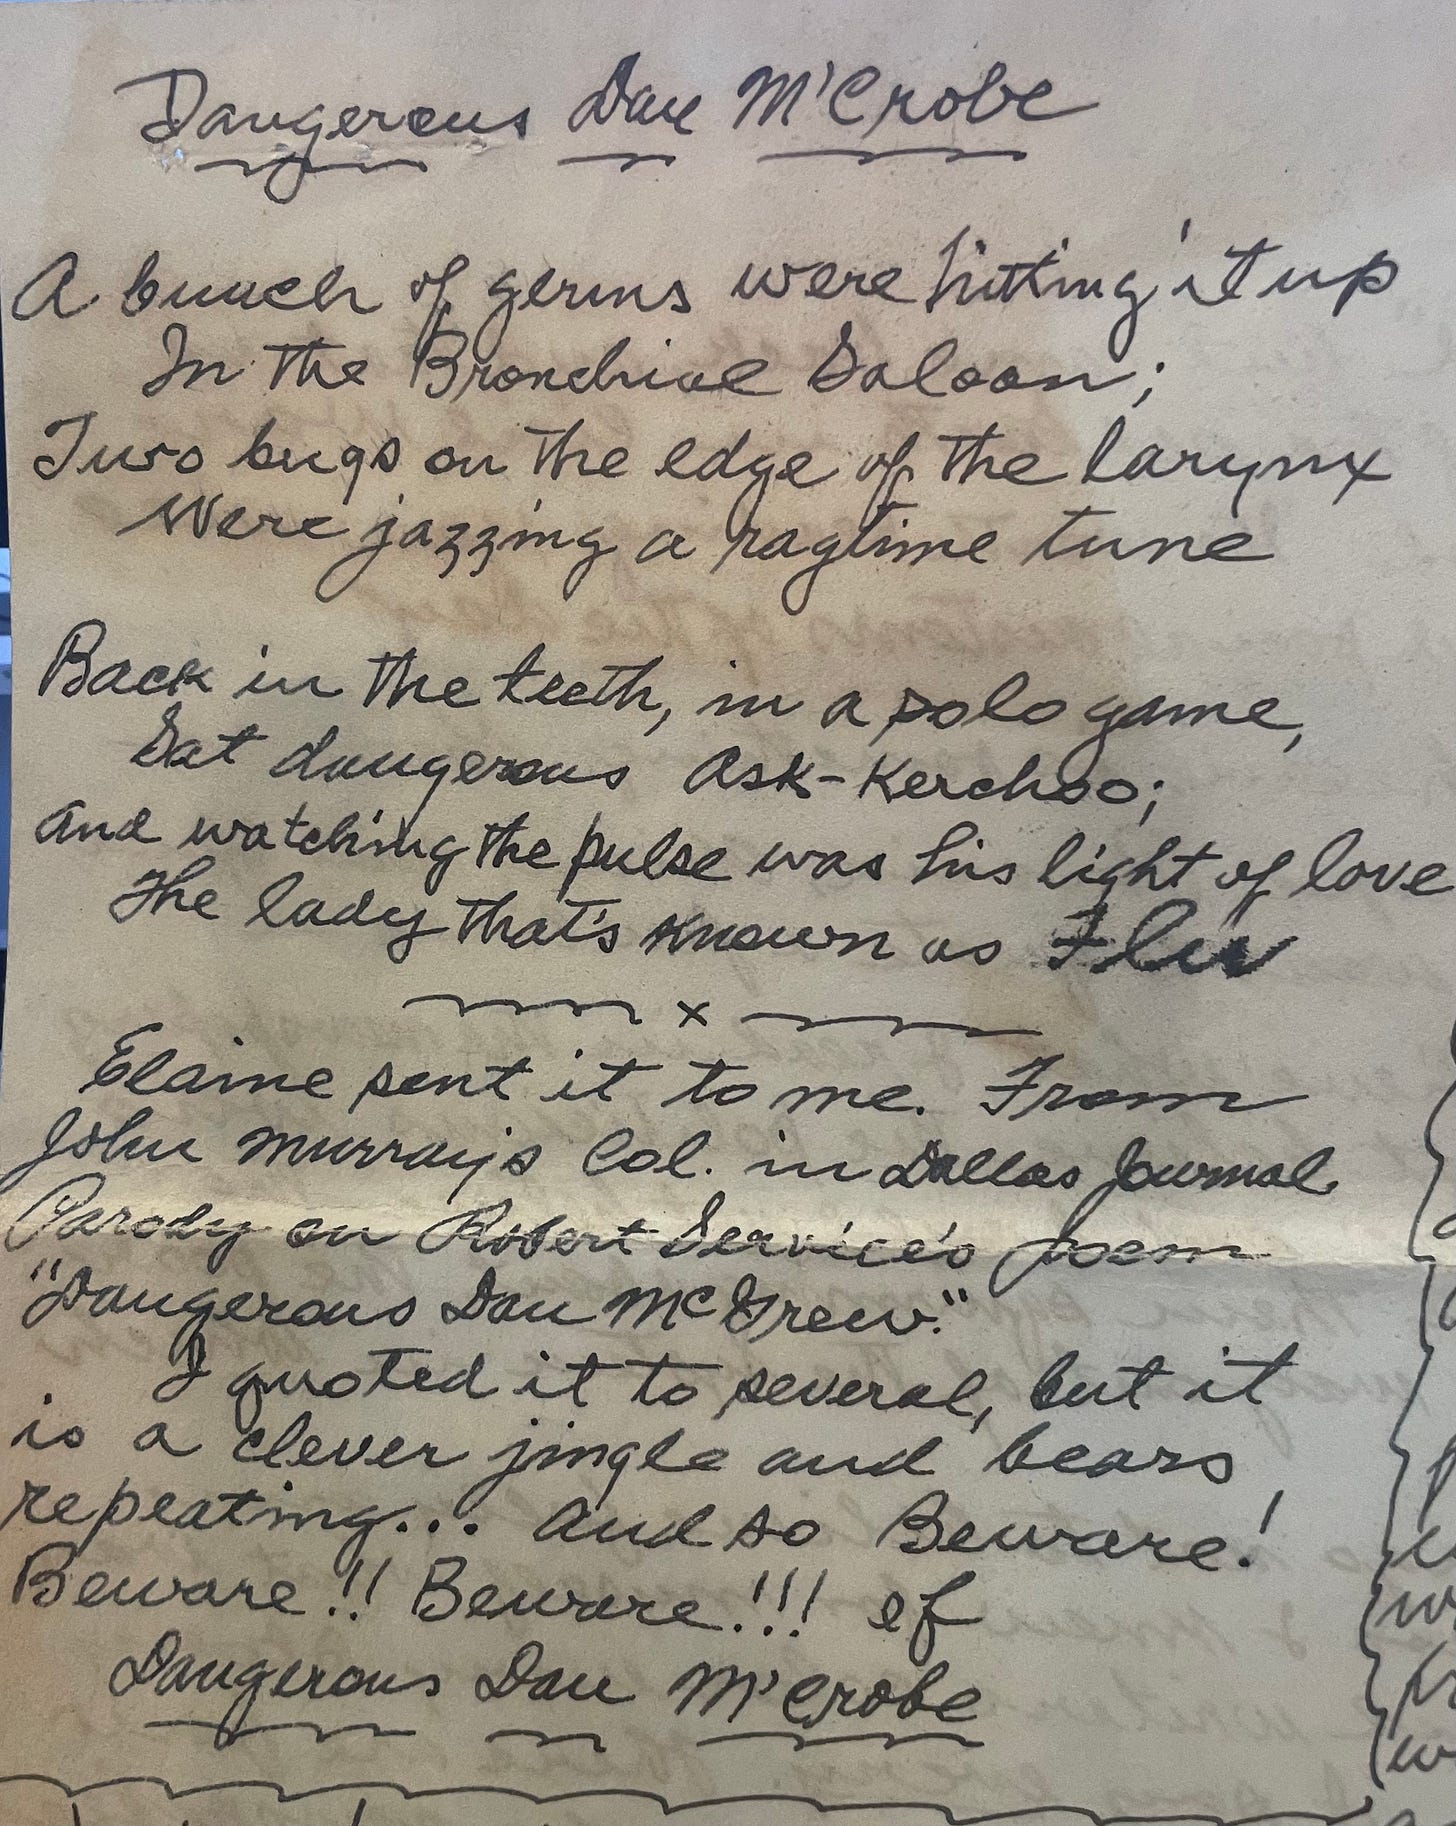 Dangerous Dan M'Crobe
A bunch of germs were hitting it up
In the Bronchial Saloon;
Two bugs on the edge of the larynx
Were jazzing a ragtime tune
Back in the teeth, in a polo game,
Sat dangerous Ask-Kerchoo;
And watching the pulse was his light of love
The lady that's known as Flu
x
Elaine sent it to me. From
John Murray's Col. in Dallas Journal
Parody on Robert Service's poem
"Dangerous Dan McGrew."
I quoted it to several, but it
is a clever jingle and bears
repeating... And so Beware!
Beware!! Beware!!! of
Dangerous Dan M'Crobe